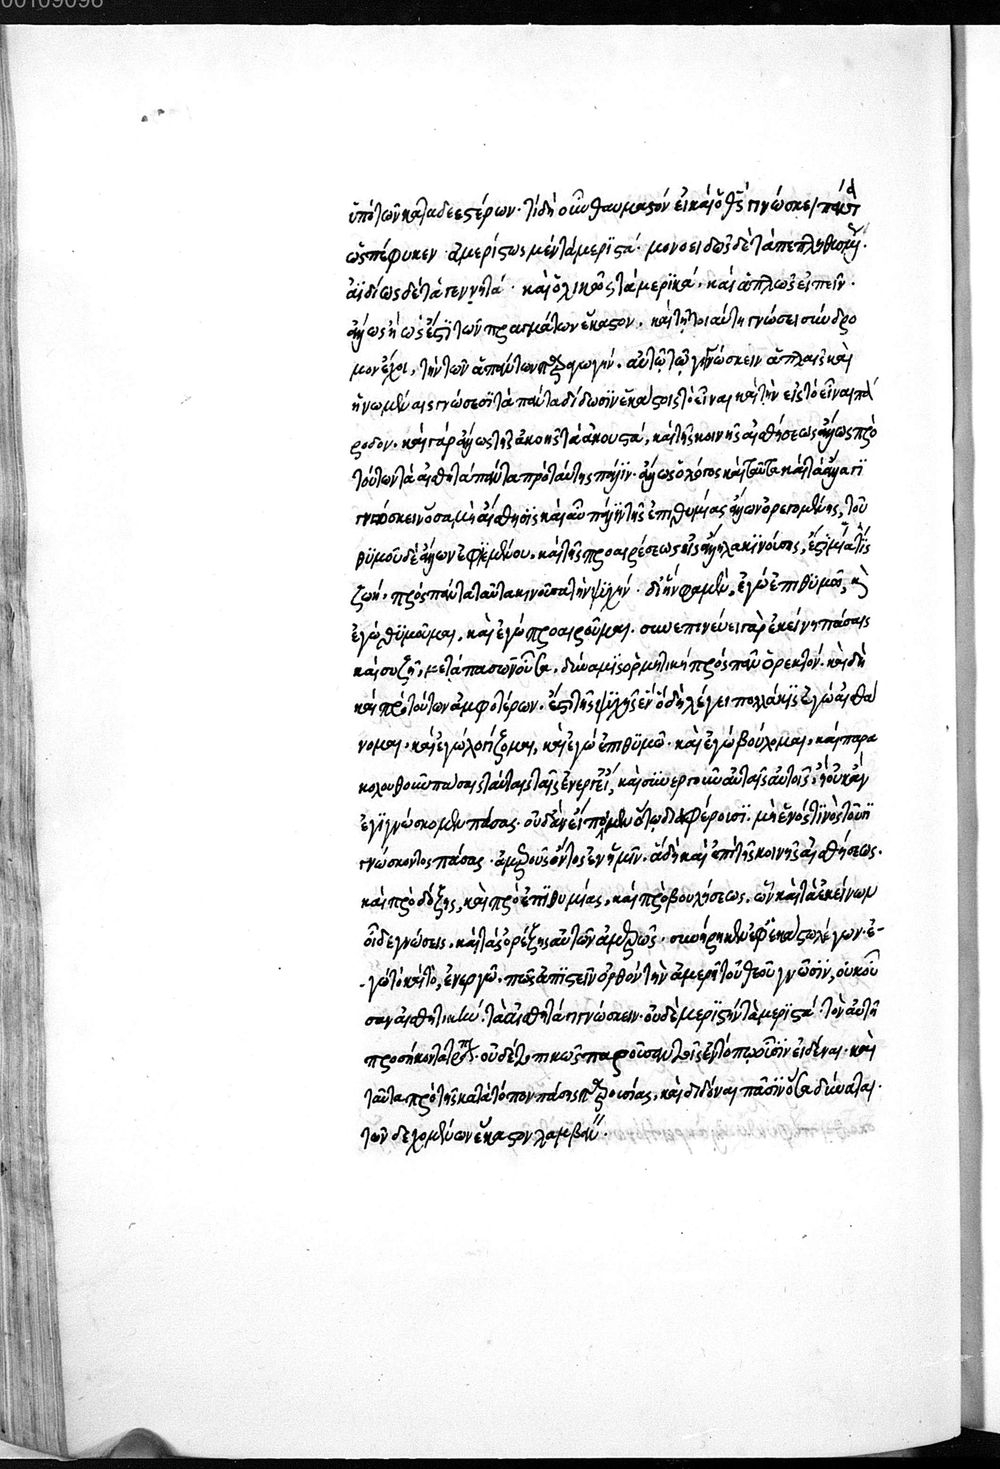 00109098
ὑπὸ τῶν καταδεεστέρων. τί δὴ οὖν θαυμαστόν εἰ καὶ ὁ θεὸς γινώσκει πάντα
ὡς πέφυκεν ἀμερίστως μὲν τὰ μεριστά. μονοειδῶς δὲ τὰ πεπληθυσμένα.
ἀϊδίως δὲ τὰ γεννητά. καὶ ὁλικῶς τὰ μερικά. καὶ ἁπλῶς εἰπεῖν.
ἄλλως ἢ ὡς ἔστι τῶν πραγμάτων ἕκαστον. καὶ τῇ τοιαύτῃ γνώσει σύνδρο
μον ἔχει, τὴν τῶν ἁπάντων παραγωγήν. αὐτῷ τῷ γινώσκειν ἁπλαῖς καὶ
ἡνωμέναις γνώσεσι τὰ πάντα δίδωσιν ἑκάστοις τὸ εἶναι καὶ τὴν εἰς τὸ εἶναι πά
ροδον. καὶ γὰρ ἄλλως τῆς ἀκοῆς τὰ ἀκουστά, καὶ τῆς κοινῆς αἰσθήσεως ἄλλως πρὸ
τούτων τὰ αἰσθητὰ πάντα πρὸ ταύτης
γινώσκειν ὅσα μὴ αἴσθησις καὶ αὖ πάλιν τῆς ἐπιθυμίας ἄλλων ὀρεγομένης, τοῦ
θυμοῦ δὲ ἄλλων ἐφιεμένου. καὶ τῆς προαιρέσεως εἰς ἄλλα κινούσης, ἔστι μία τις
ζωή. πρὸς πάντα ταῦτα κινοῦσα τὴν ψυχήν. δι' ἣν φαμὲν, ἐγὼ ἐπιθυμῶ, καὶ
ἐγὼ θυμοῦμαι, καὶ ἐγὼ προαιροῦμαι. συνεπινεύει γὰρ ἐκείνη πάσαις
καὶ συζῇ μετὰ πασῶν οὖσα, δύναμις ὁρμητικὴ πρὸς πᾶν ὀρεκτόν. καὶ δὴ
καὶ πρὸ τούτων ἀμφοτέρων. ἔστι τῆς ψυχῆς ἓν ὃ δὴ λέγει πολλάκις ἐγὼ αἰσθά
νομαι. καὶ ἐγὼ λογίζομαι, καὶ ἐγὼ ἐπιθυμῶ. καὶ ἐγὼ βούλομαι. καὶ παρα
κολουθοῦν πάσαις ταύταις ταῖς ἐνεργείαις, καὶ συνεργοῦν αὐταῖς
ἐγινώσκομεν πάσας. οὐδ' ἂν εἴπομεν ὅτῳ διαφέρουσι. μὴ ἑνός τινος τοῦ γι
γνώσκοντος πάσας. ἀμεροῦς ὄντος ἐν ἡμῖν. ἤδη καὶ ἐπὶ τῆς κοινῆς αἰσθήσεως.
καὶ πρὸ δόξης, καὶ πρὸ ἐπιθυμίας, καὶ πρὸ βουλήσεως. ὃ καὶ τὰς ἐκείνων
οἶδε γνώσεις. καὶ τὰς ὀρέξεις αὐτῶν ἀμερῶς. συνῄρηκεν ἐφ' ἑκάστῳ λέγων. ἐ-
γὼ τὸ καὶ τὸ, ἐνεργῶ. πῶς ἀπιστεῖν ὀρθόν τὴν ἀμερῆ τοῦ θεοῦ γνῶσιν, οὐκ οὖ
σαν αἰσθητικήν. τὰ αἰσθητὰ γινώσκειν. οὐδὲ μεριστὴν τὰ μεριστά. τὸν αὐτῇ
προσήκοντα τρόπον. οὐδὲ τοπικῶς παροῦσαν τοῖς ἐν τόπῳ οὖσιν εἰδέναι. καὶ
ταῦτα πρὸ τῆς κατὰ τόπον πάσης παρουσίας, καὶ διδόναι πᾶσιν ὅσα δύναται.
τῶν δεχομένων ἕκαστον λαμβάνειν.